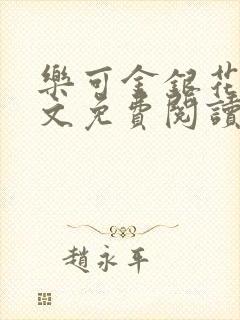 樂可金銀花
文免費閱讀
趙永平